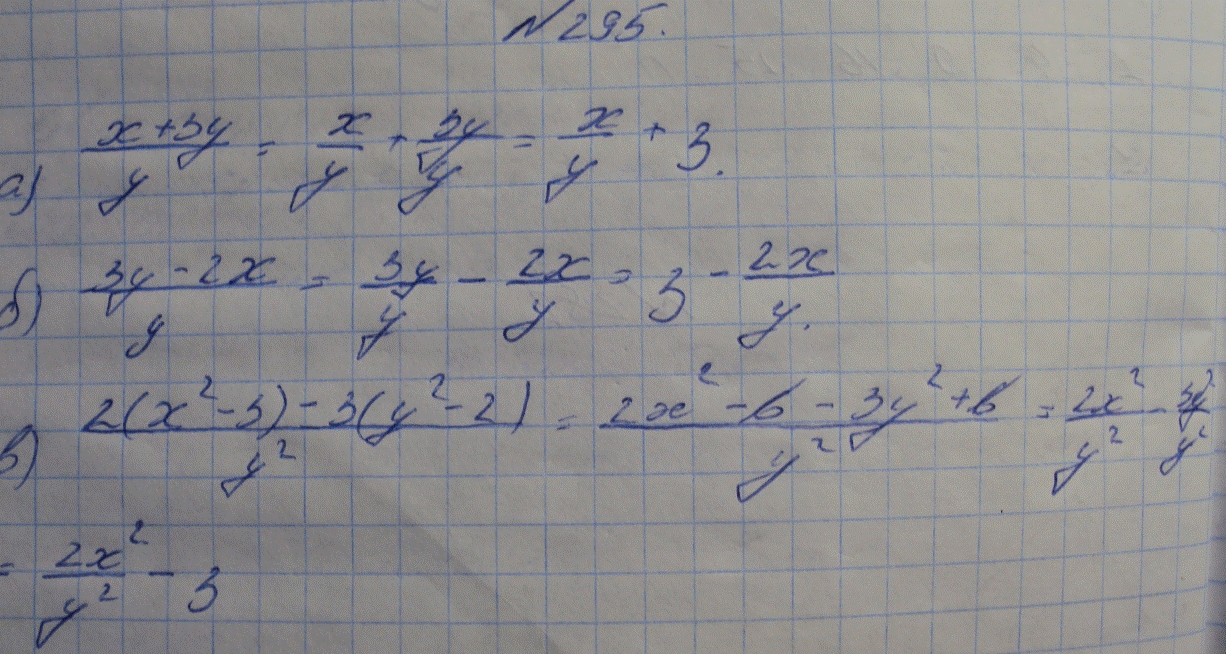 №295.
а) (x+3y)/y = x/y + 3y/y = x/y + 3.
б) (3y-2x)/y = 3y/y - 2x/y = 3 - 2x/y.
в) (2(x²-3)-3(y²-2))/y² = (2x²-6-3y²+6)/y² = 2x²/y² - 3y²/y²
= 2x²/y² - 3